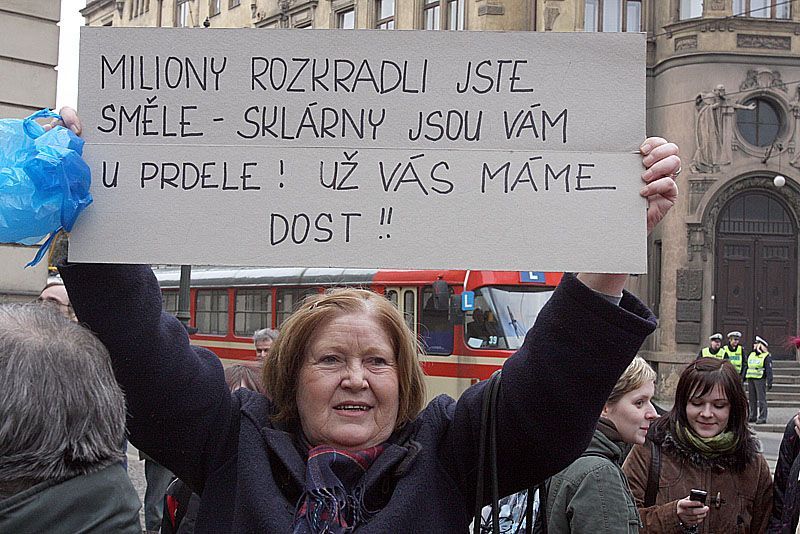 MILIONY ROZKRADLI JSTE
SMĚLE - SKLÁRNY JSOU VÁM
U PRDELE! UŽ VÁS MÁME
DOST !!
L
L
39